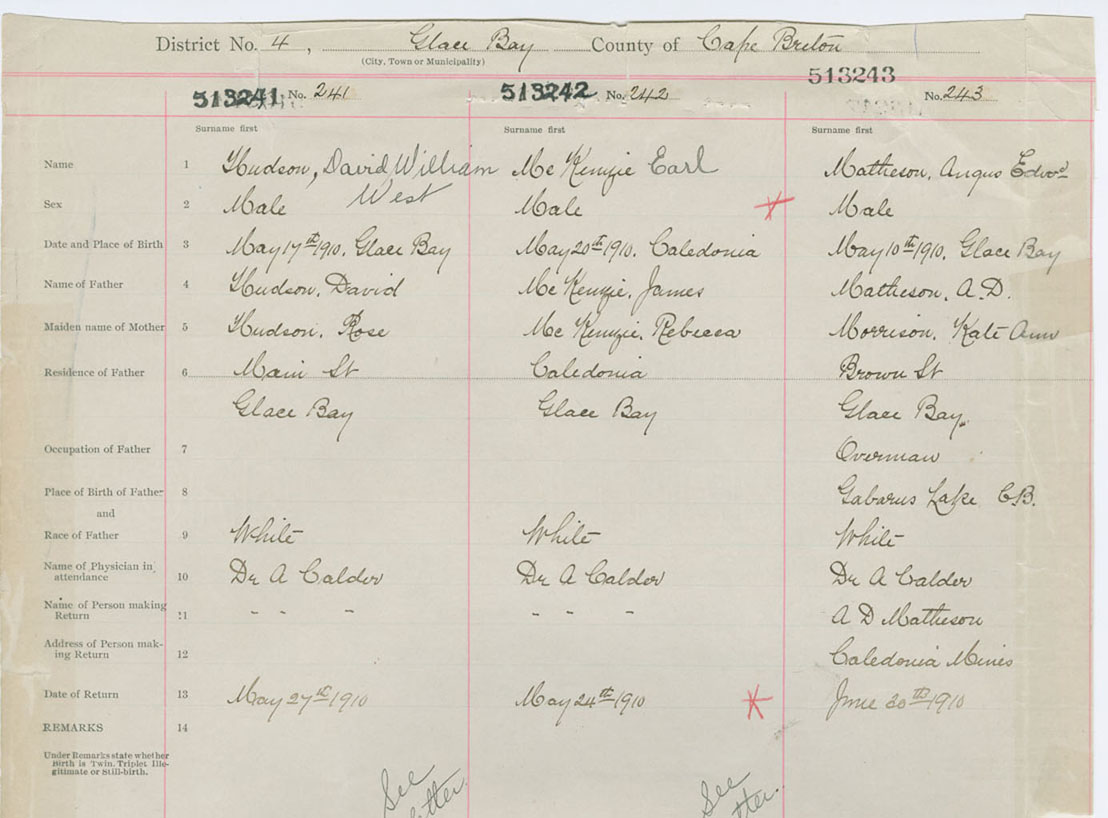 District No. 4, Glace Bay County of Cape Breton
(City, Town or Municipality)
513241 No. 241 513242 No. 242 513243 No. 243
Surname first Surname first Surname first
Name 1 Hudson, David William McKenzie Earl Matheson, Angus Edwd
West
Sex 2 Male Male Male
Date and Place of Birth 3 May 17th 1910, Glace Bay May 20th 1910. Caledonia May 10th 1910, Glace Bay
Name of Father 4 Hudson, David McKenzie, James Matheson, A.D.
Maiden name of Mother 5 Hudson, Rose McKenzie, Rebecca Morrison, Kate Ann
Residence of Father 6 Main St Caledonia Brown St
Glace Bay Glace Bay Glace Bay
Occupation of Father 7 Overman
Place of Birth of Father 8 Gabarus Lake C.B.
and
Race of Father 9 White White White
Name of Physician in attendance 10 Dr A Calder Dr A Calder Dr A Calder
Name of Person making Return 11 " " " " " " A D Matheson
Address of Person making Return 12 Caledonia Mines
Date of Return 13 May 27th 1910 May 24th 1910 June 30th 1910
REMARKS 14
Under Remarks state whether
Birth is Twin, Triplet Ille-
gitimate or Still-birth.
See See